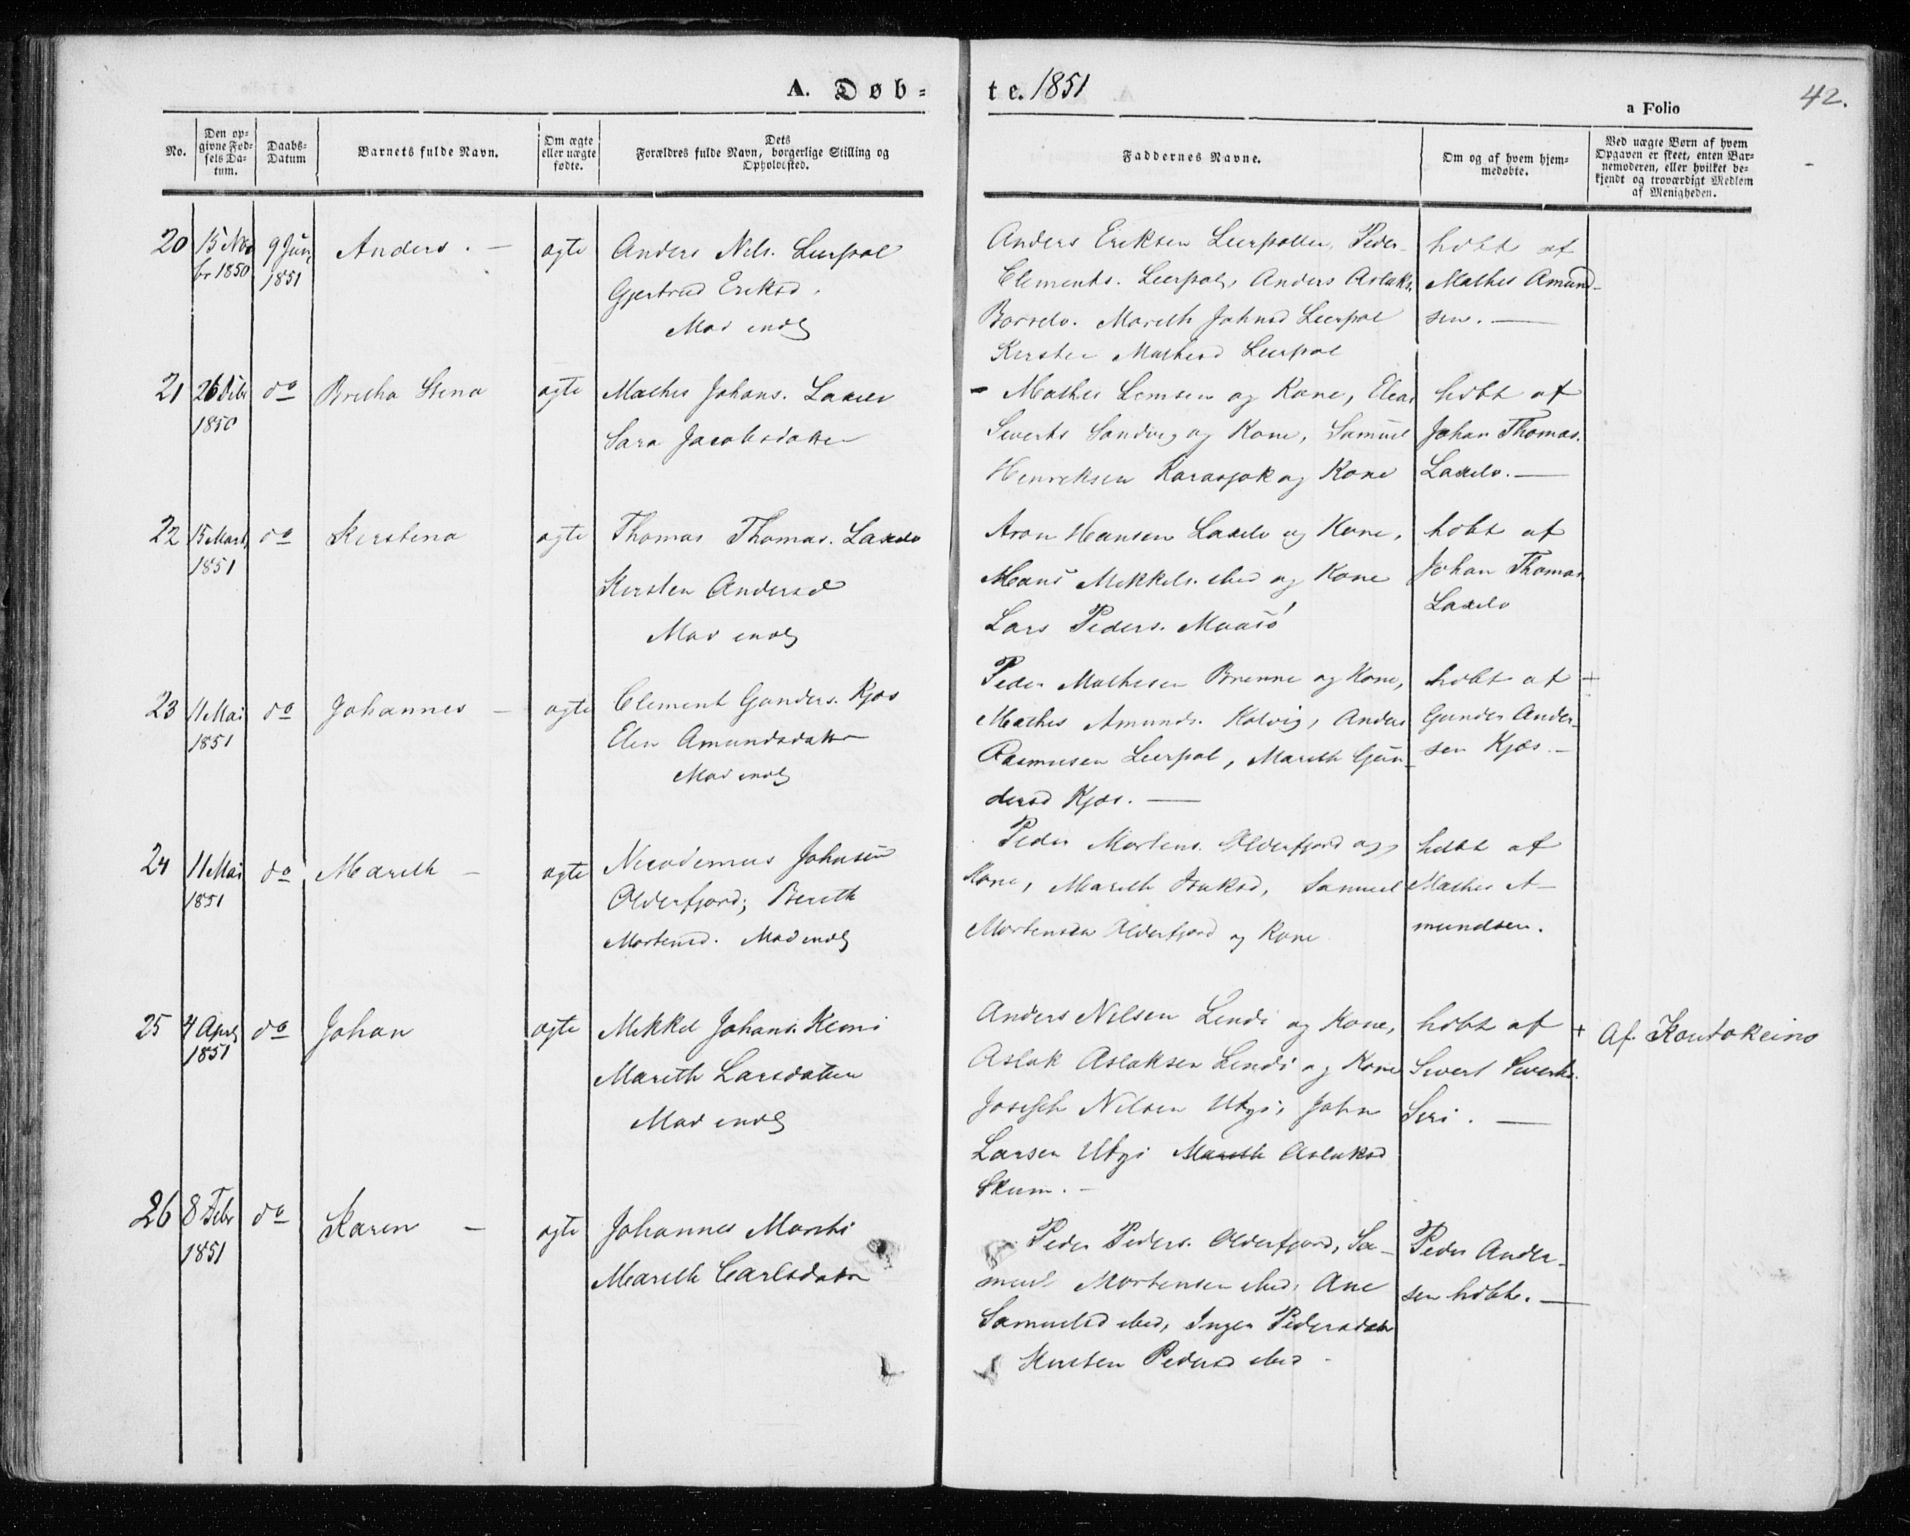 A. Døb=
te. 1851
42.
a Folio
No.
Den op-
givne Fød-
sels Da-
tum.
Daabs-
Datum
Barnets fulde Navn.
Om ægte
eller uægte
fødte.
Dets
Forældres fulde Navn, borgerlige Stilling og
Opholdssted.
Faddernes Navne.
Om og af hvem hjem-
medøbte.
Ved uægte Børn af hvem
Opgaven er skeet, enten Bar-
nemoderen, eller hvilket be-
kjendt og troværdigt Medlem
af Menigheden.
20
15 Nov
br 1850
9 Jun,
1851
Anders. —
ægte
Anders Nils. Leerpol
Gjertrud Eriksd.
Anders Eriksen Leerpollen, Peder
Clements. Leerpol, Anders Aslaks.
Børselv. Mareth Johnsd Leerpol
Kersten Mathisd Leerpol
hdbt af
Mathis Amund-
sen. —
21
26
1850
do
Bretha Stena
ægte
Mathis Johans. Laxelv
Sara Jacobsdatter
- Mathis Lemsen og Kone, Elias
Siverts Sandvig og Kone, Samuel
Henriksen Karasjok og Kone
hdbt af
Johan Thomas.
Laxelv. —
22
15 Mart,
1851
do
Kerstena
ægte
Thomas Thomas. Laxelv
Kersten Andersd
Aron Hansen Laxelv og Kone,
Hans Mikkels. ibid og Kone
Lars Peders. Maasø
hdbt af
Johan Thomas
Laxelv
23
11 Mai
1851
do
Johannes —
ægte
Clement Gunders. Kjæs
Elen Amundsdatter
Peder Mathisen Brenne og Kone,
Mathis Amunds. Kolvig, Anders
Rasmusen Leerpol, Mareth Gun-
dersd Kjæs. —
hdbt af
Gunder Ander-
sen Kjæs. —
+
24
11 Mai
1851
do
Mareth —
ægte
Nicodemus Johnsen
Olderfjord; Bereth
Mortensd.
Peder Mortens. Olderfjord og
Kone, Mareth Isaksd, Samuel
Mortensen Olderfjord og Kone
hdbt af
Mathis A-
mundsen.
25
4 April
1851
do
Johan
ægte
Mikkel Johans. Kemi
Mareth Larsdatter
Anders Nilsen Lindi og Kone,
Aslak Aslaksen Lindi og Kone
Joseph Nilsen Utsi, John
Larsen Utsi Mareth Aslaksd
Skum. —
hdbt af
Sivert Siverts.
Siri. —
+
Af. Koutokeino
26
8 Febr
1851
do
Karen —
ægte
Johannes
Mareth Carlsdatter
Peder Peders. Olderfjord, Sa-
muel Mortensen ibid, Ane
Samuelsd ibid, Inger Pedersdatter
Kersten Pedersd ibid.
Peder Ander-
sen hdbt. —